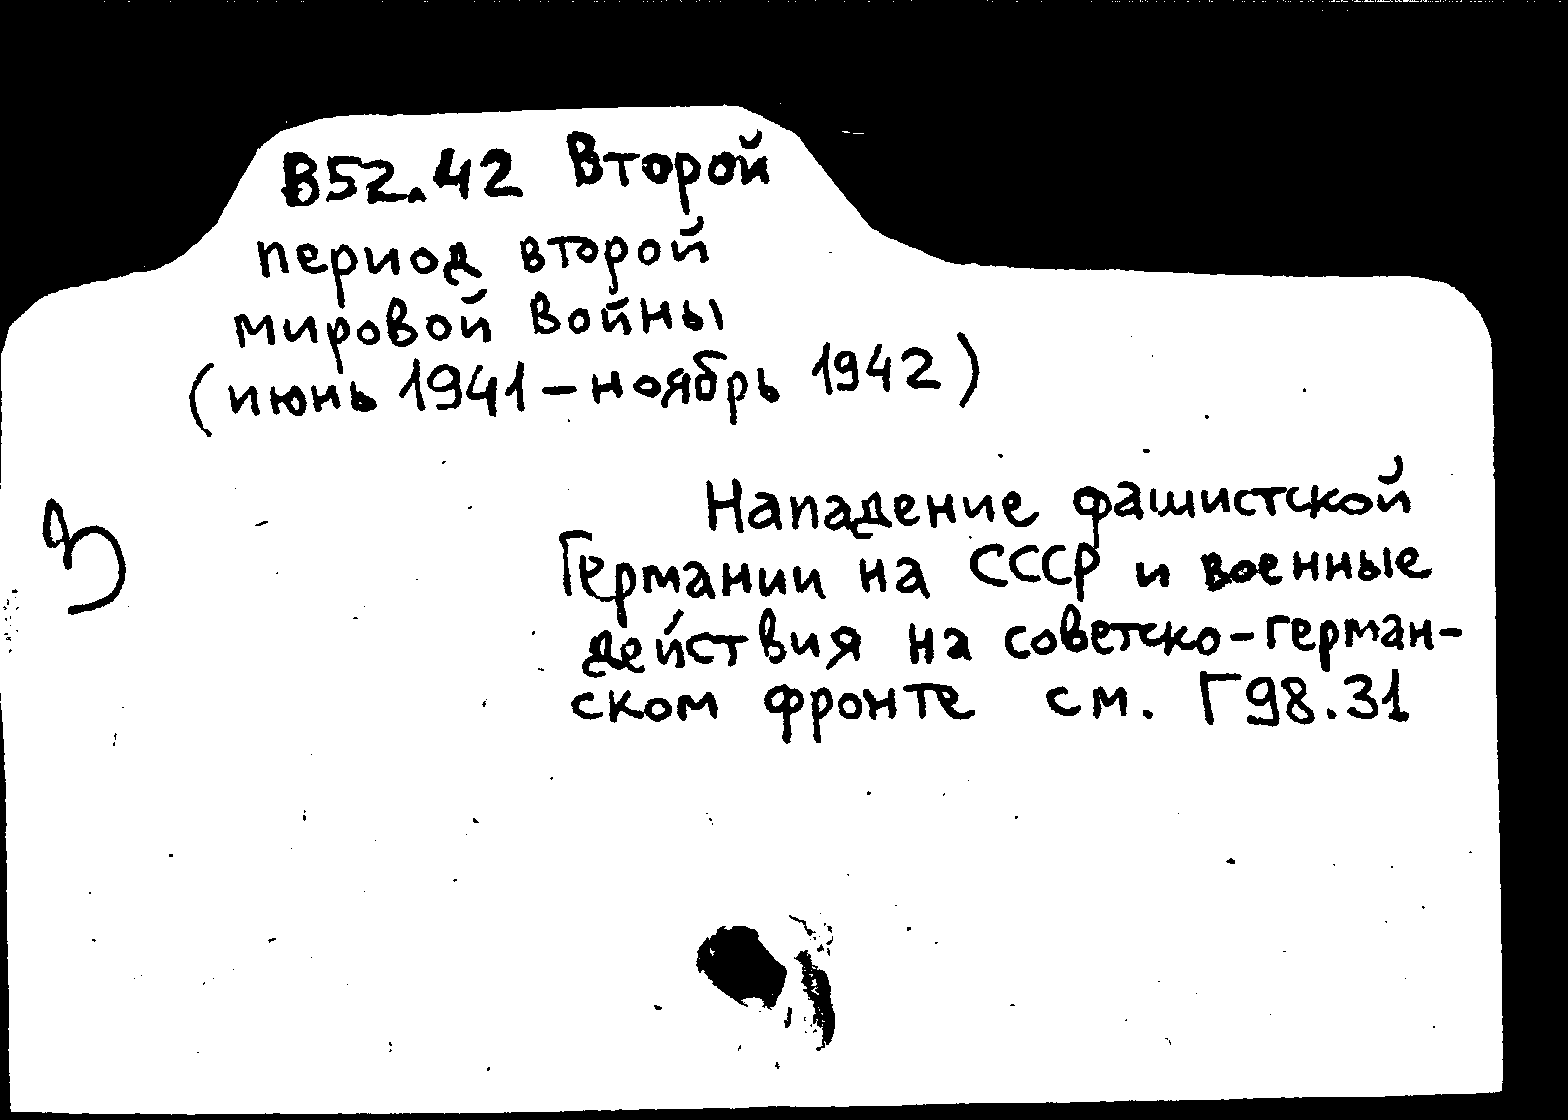 В52.42 Второй
период второй
мировой войны
(июнь 1941 – ноябрь 1942)
Нападение фашистской
Германии на СССР и военные
действия на советско-герман-
ском фронте см. Г98.31